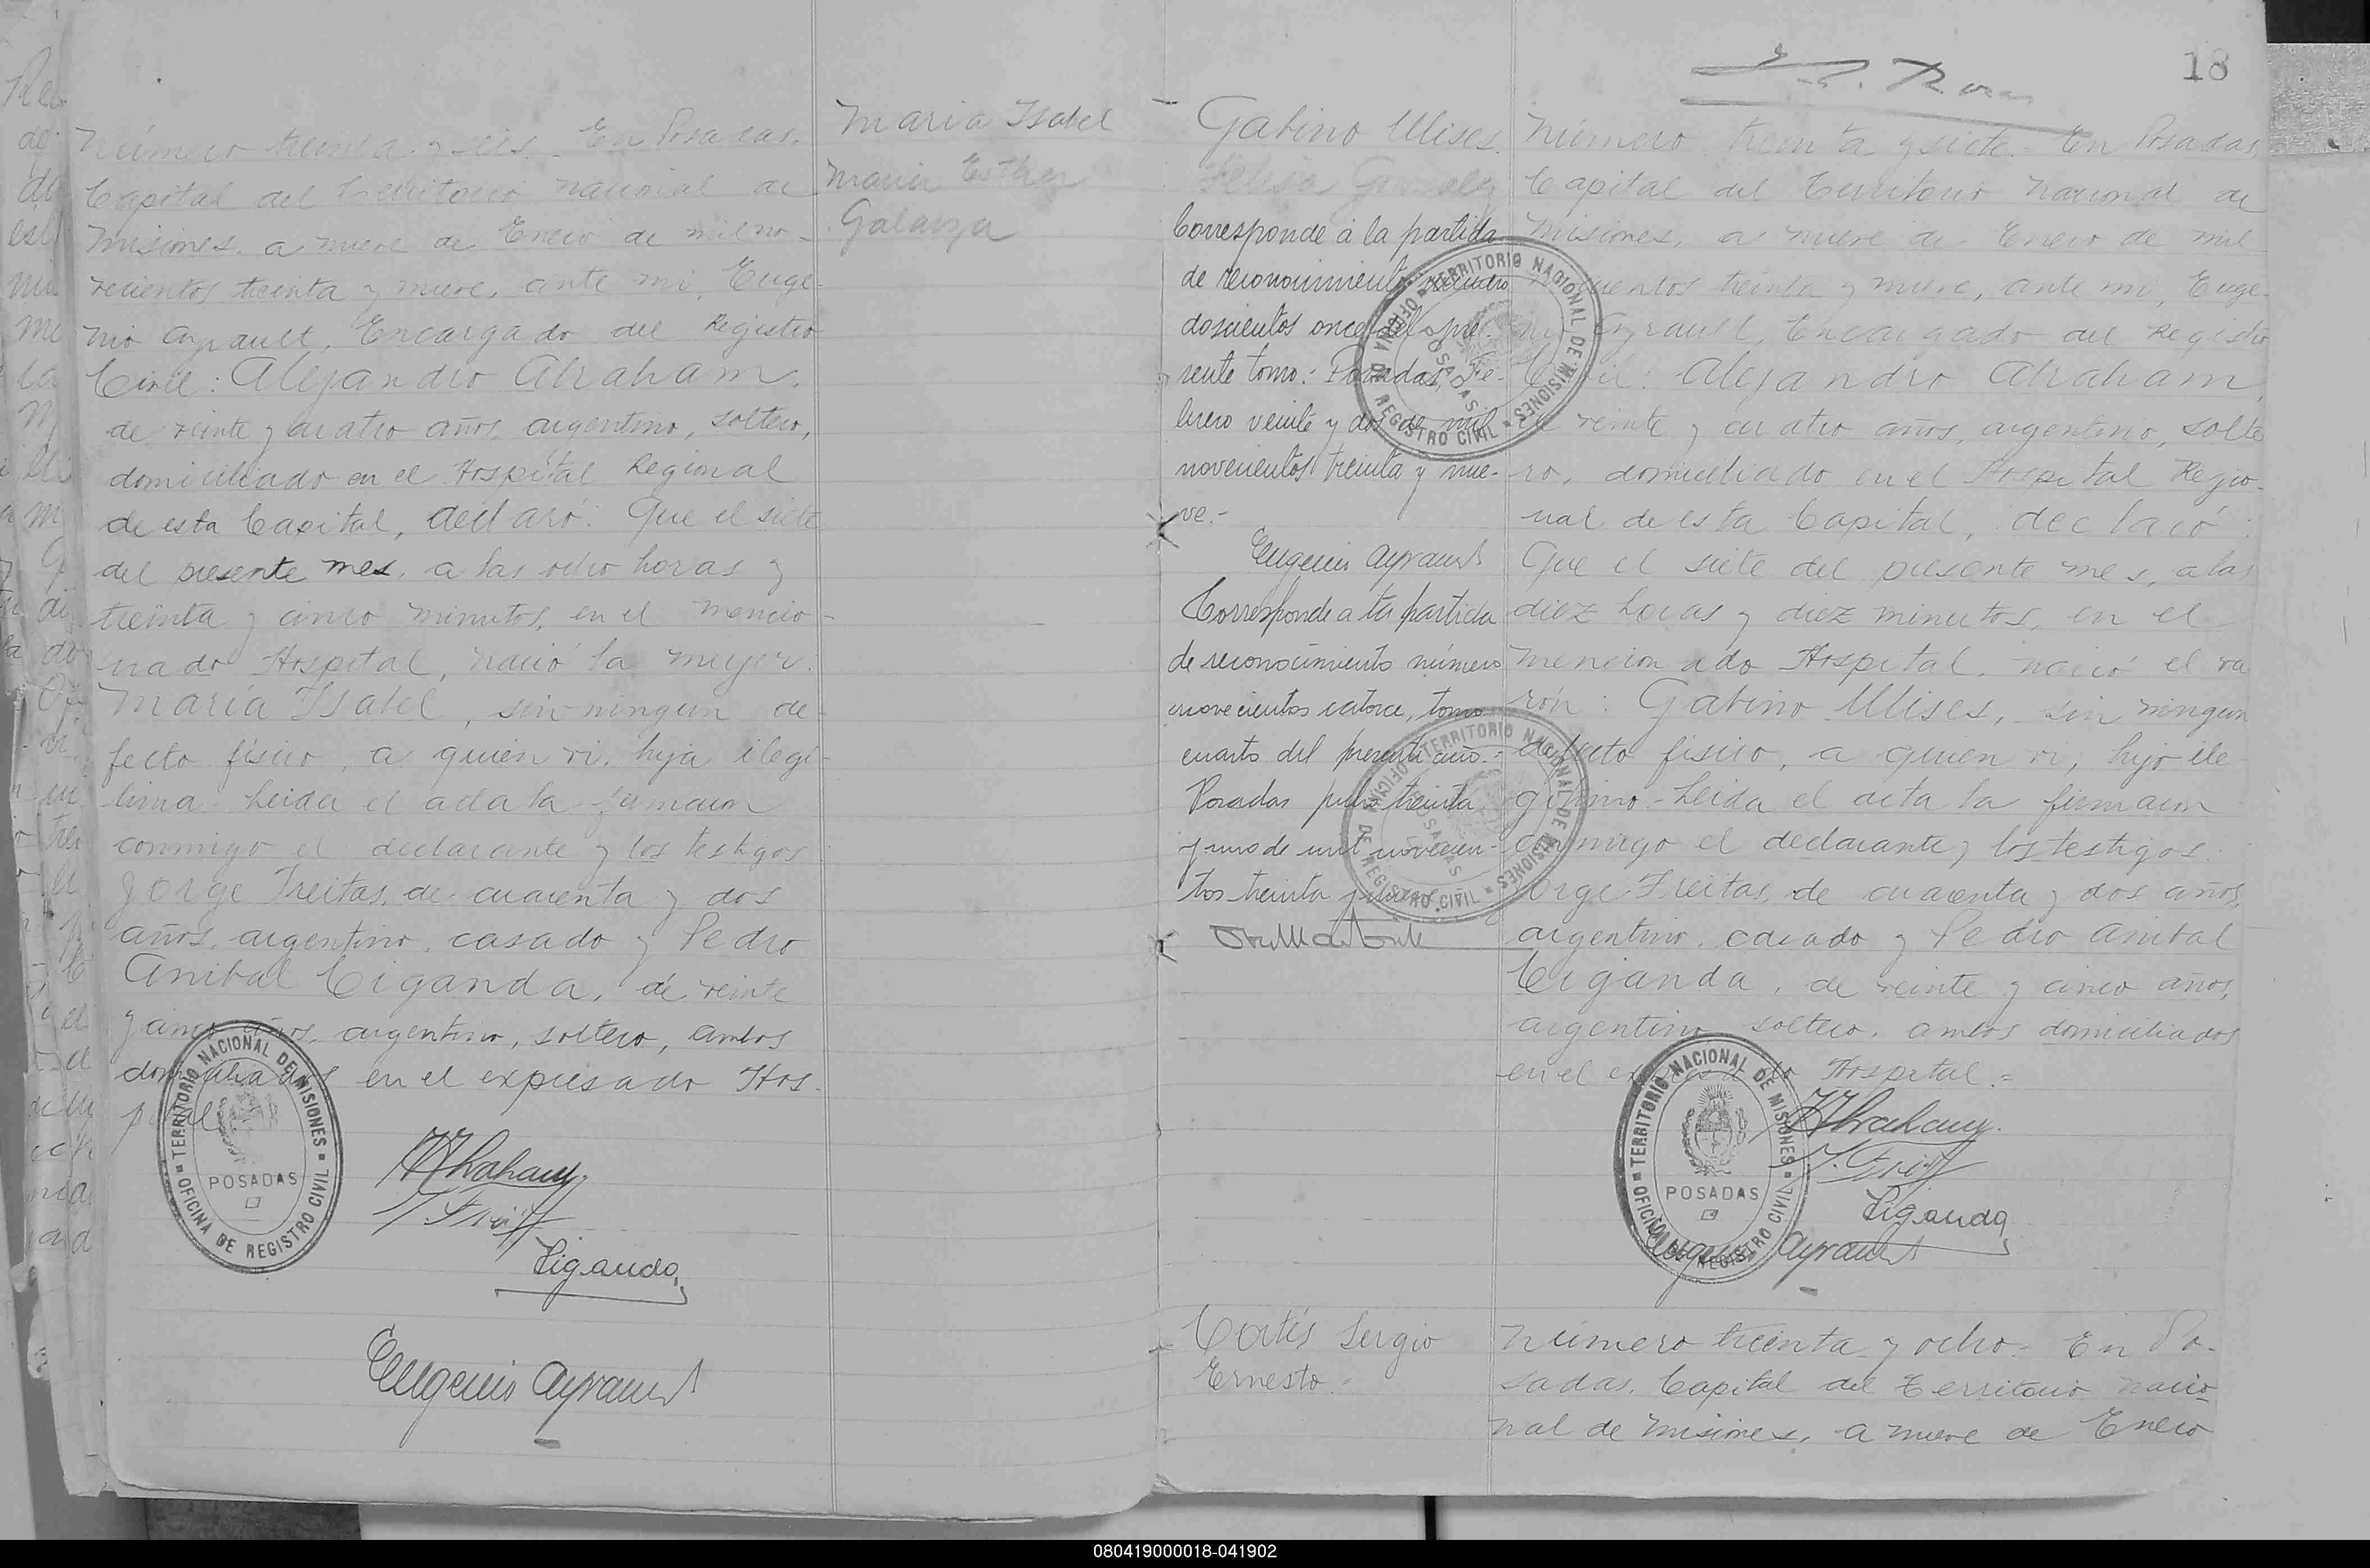 Número treinta y seis. En Posadas,
Capital del Territorio Nacional de
Misiones, a nueve de Enero de mil no-
vecientos treinta y nueve, ante mí, Euge-
nio Ayrault, Encargado del Registro
Civil: Alejandro Abraham,
de veinte y cuatro años, argentino, soltero,
domiciliado en el Hospital Regional
de esta Capital, declaró: Que el siete
del presente mes, a las ocho horas y
treinta y cinco minutos, en el mencio-
nado Hospital, nació la mujer:
María Isabel, sin ningún de-
fecto físico, a quien vi, hija ilegí-
tima. Leida el acta la firmaron
conmigo el declarante y los testigos
Jorge Freitas, de cuarenta y dos
años, argentino, casado y Pedro
Anibal Ciganda, de veinte
y cinco años, argentino, soltero, ambos
domiciliados en el expresado Hos-
pital
María Isabel
María Esther
Galarza
TERRITORIO NACIONAL DE MISIONES
OFICINA DE REGISTRO CIVIL
POSADAS
AAbraham
J. Freitas
Ciganda
Eugenio Ayrault
18
Gabino Ulises.
Felisa
Corresponde á la partida
de reconocimiento número
doscientos once del pre-
sente tomo.- Posadas, Fe-
brero veinte y dos de mil
novecientos treinta y nue-
ve.-
Eugenio Ayrault
Corresponde a la partida
de reconocimiento número
novecientos catorce, tomo
cuarto del presente año.-
Posadas julio treinta
y uno de mil novecien-
tos treinta y nueve.
TERRITORIO NACIONAL DE MISIONES
OFICINA DE REGISTRO CIVIL
POSADAS
TERRITORIO NACIONAL DE MISIONES
OFICINA DE REGISTRO CIVIL
POSADAS
Número treinta y siete. En Posadas,
Capital del Territorio Nacional de
Misiones, a nueve de Enero de mil
novecientos treinta y nueve, ante mí, Euge-
nio Ayrault, Encargado del Registro
Civil: Alejandro Abraham,
de veinte y cuatro años, argentino, solte
ro, domiciliado en el Hospital Regio-
nal de esta Capital, declaró:
Que el siete del presente mes, a las
diez horas y diez minutos, en el
mencionado Hospital, nació el va
rón: Gabino Ulises, sin ningún
defecto físico, a quien vi, hijo ile-
gítimo. Leida el acta la firmaron
conmigo el declarante y los testigos
Jorge Freitas, de cuarenta y dos años,
argentino, casado y Pedro Anibal
Ciganda, de veinte y cinco años,
argentino, soltero, ambos domiciliados
en el expresado Hospital.=
TERRITORIO NACIONAL DE MISIONES
OFICINA DE REGISTRO CIVIL
POSADAS
AAbraham
J. Freitas
Ciganda
Eugenio Ayrault
Cortés Sergio
Ernesto.-
Número treinta y ocho.- En Po-
sadas, Capital del Territorio Nacio-
nal de Misiones, a nueve de Enero
080419000018-041902